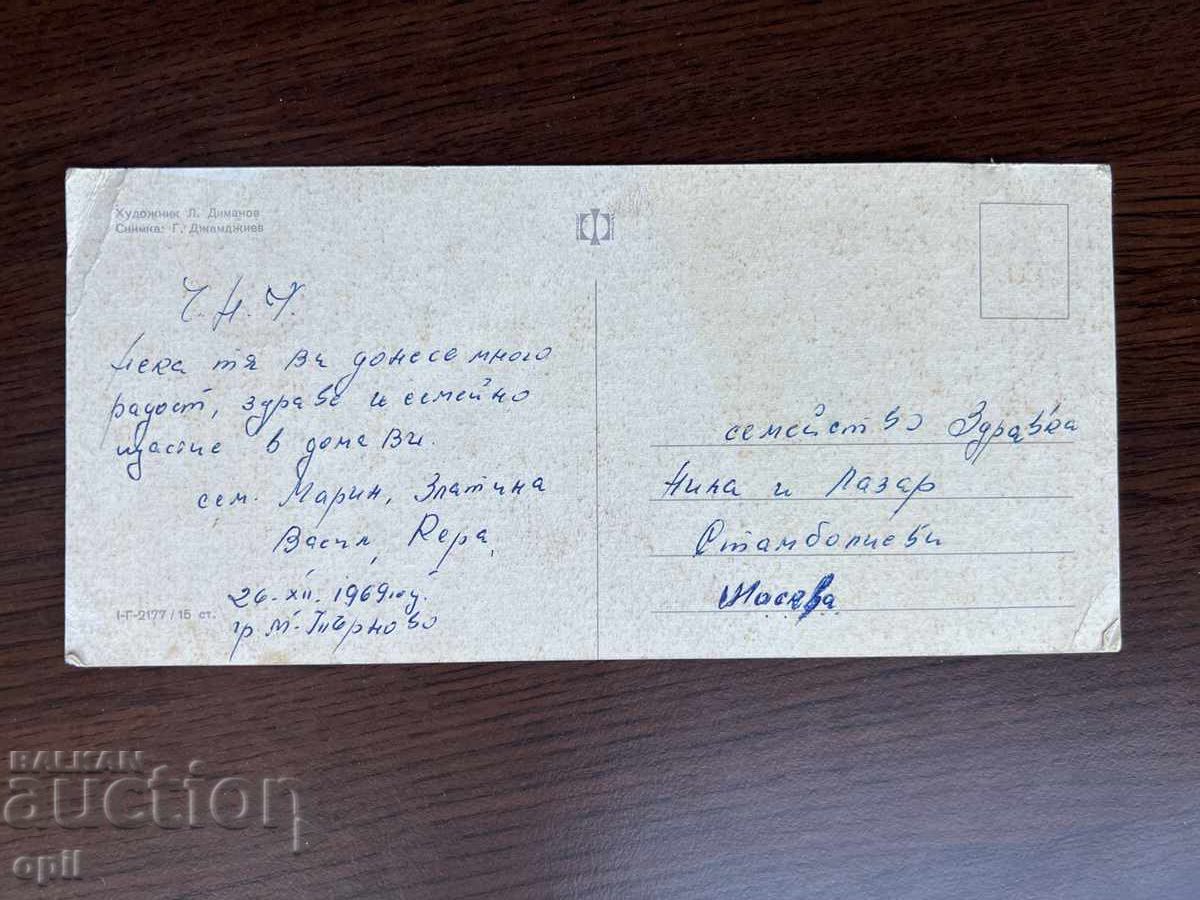 Художник Л. Диманов
Снимка: Г. Джамджиев
Ч.Н.Г.
Нека тя Ви донесе много
радост, здраве и семейно
щастие в дома Ви.
сем. Марин, Златина
Васил, Вера
26.XII.1969 год.
гр. М-Търново
I-Г-2177/15 ст.
семейство Здравка
Нина и Лазар
Стамболиеви
BALKAN
auction
opil